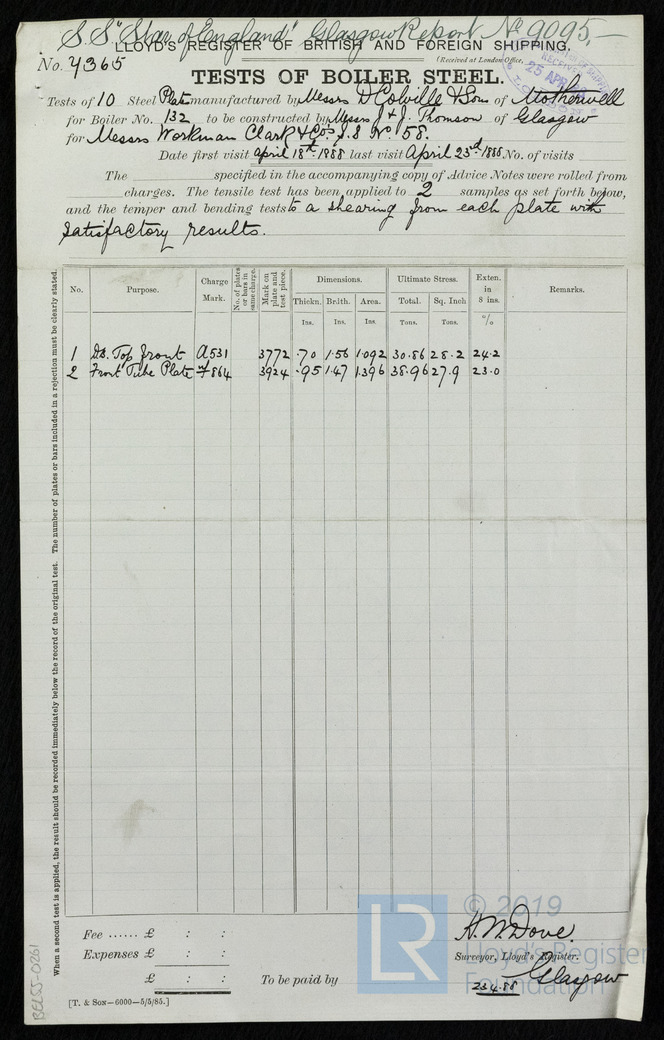 S.S "Star of England" Glasgow Report No 9095.—
LLOYD'S REGISTER OF BRITISH AND FOREIGN SHIPPING.
(Received at London Office,
25 APR
No. 4365
TESTS OF BOILER STEEL.
Tests of 10 Steel Plates manufactured by Messrs D Colville & Sons of Motherwell
for Boiler No. 132 to be constructed by Messrs J & J. Thomson of Glasgow
for Messrs Workman Clark & Co's S.S No 58.
Date first visit April 18th 1888 last visit April 23rd 1888 No. of visits
The specified in the accompanying copy of Advice Notes were rolled from
charges. The tensile test has been applied to 2 samples as set forth below,
and the temper and bending tests to a shearing from each plate with
satisfactory results.
No. Purpose. Charge Mark. No. of plates or bars in same charge. Mark on plate and test piece. Dimensions. Ultimate Stress. Exten. in 8 ins. Remarks.
Thickn. Br.lth. Area. Total. Sq. Inch
Ins. Ins. Ins. Tons. Tons. %
1 Top front A531 3772 .70 1.56 1.092 30.86 28.2 24.2
2 Front Tube Plate 864 3924 .95 1.47 1.396 38.96 27.9 23.0
When a second test is applied, the result should be recorded immediately below the record of the original test. The number of plates or bars included in a rejection must be clearly stated.
Fee ...... £ : :
Expenses £ : :
£ : :
To be paid by
H. W. Dove.
Surveyor, Lloyd's Register.
Glasgow
23.4.88
[T. & SON—6000—5/5/85.]
BEL55-0261
LR
© 2019
Lloyd's Register
Foundation